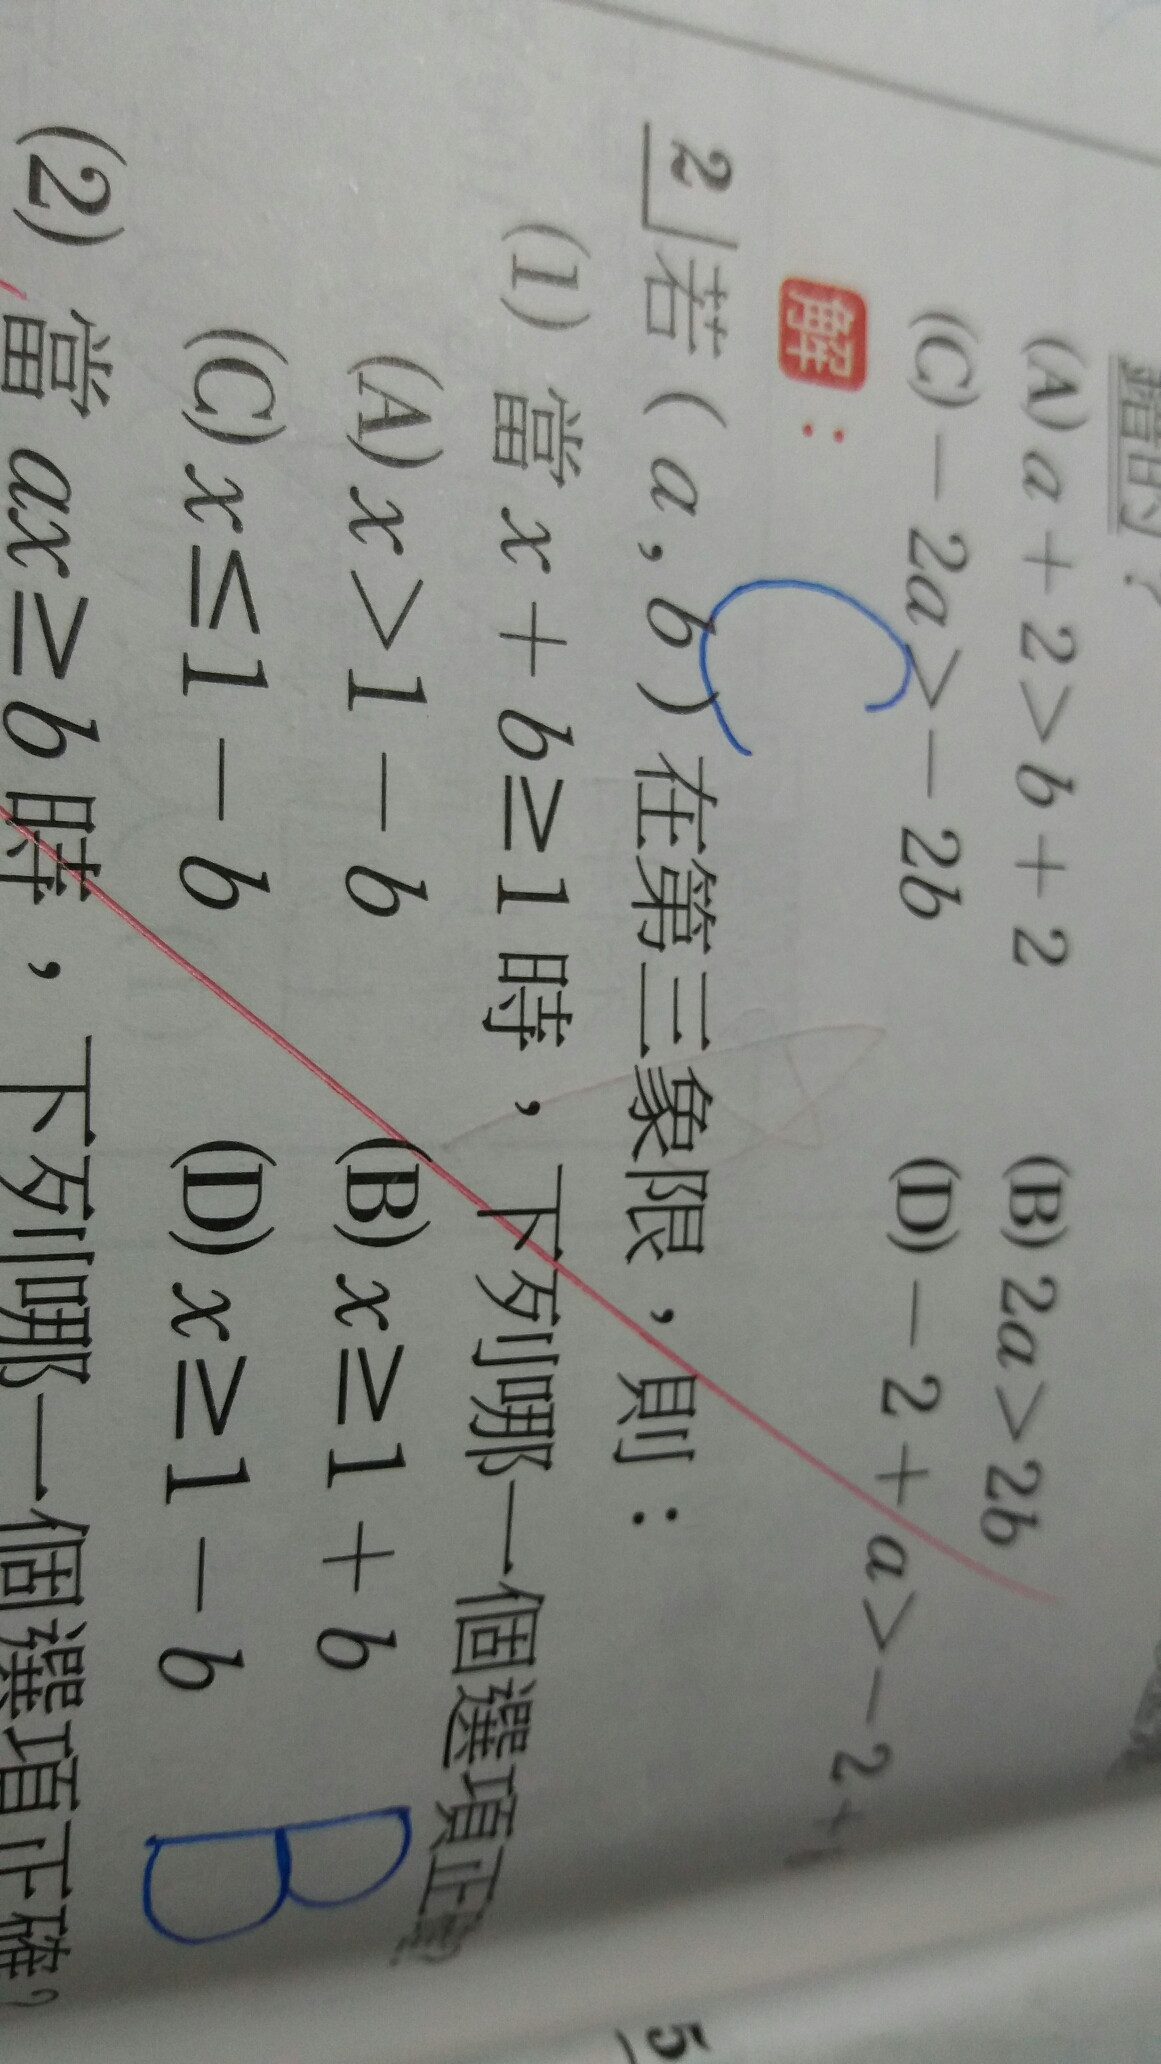 錯的？
(A) a + 2 > b + 2 (B) 2a > 2b
(C) －2a > －2b (D) －2 + a > －2 +
解：
C
2 若（a , b）在第三象限，則：
(1) 當 x + b ≥ 1 時，下列哪一個選項正確
(A) x > 1 － b (B) x ≥ 1 + b
(C) x ≤ 1 － b (D) x ≥ 1 － b
B
(2) 當 ax ≥ b 時，下列哪一個選項正確？
5